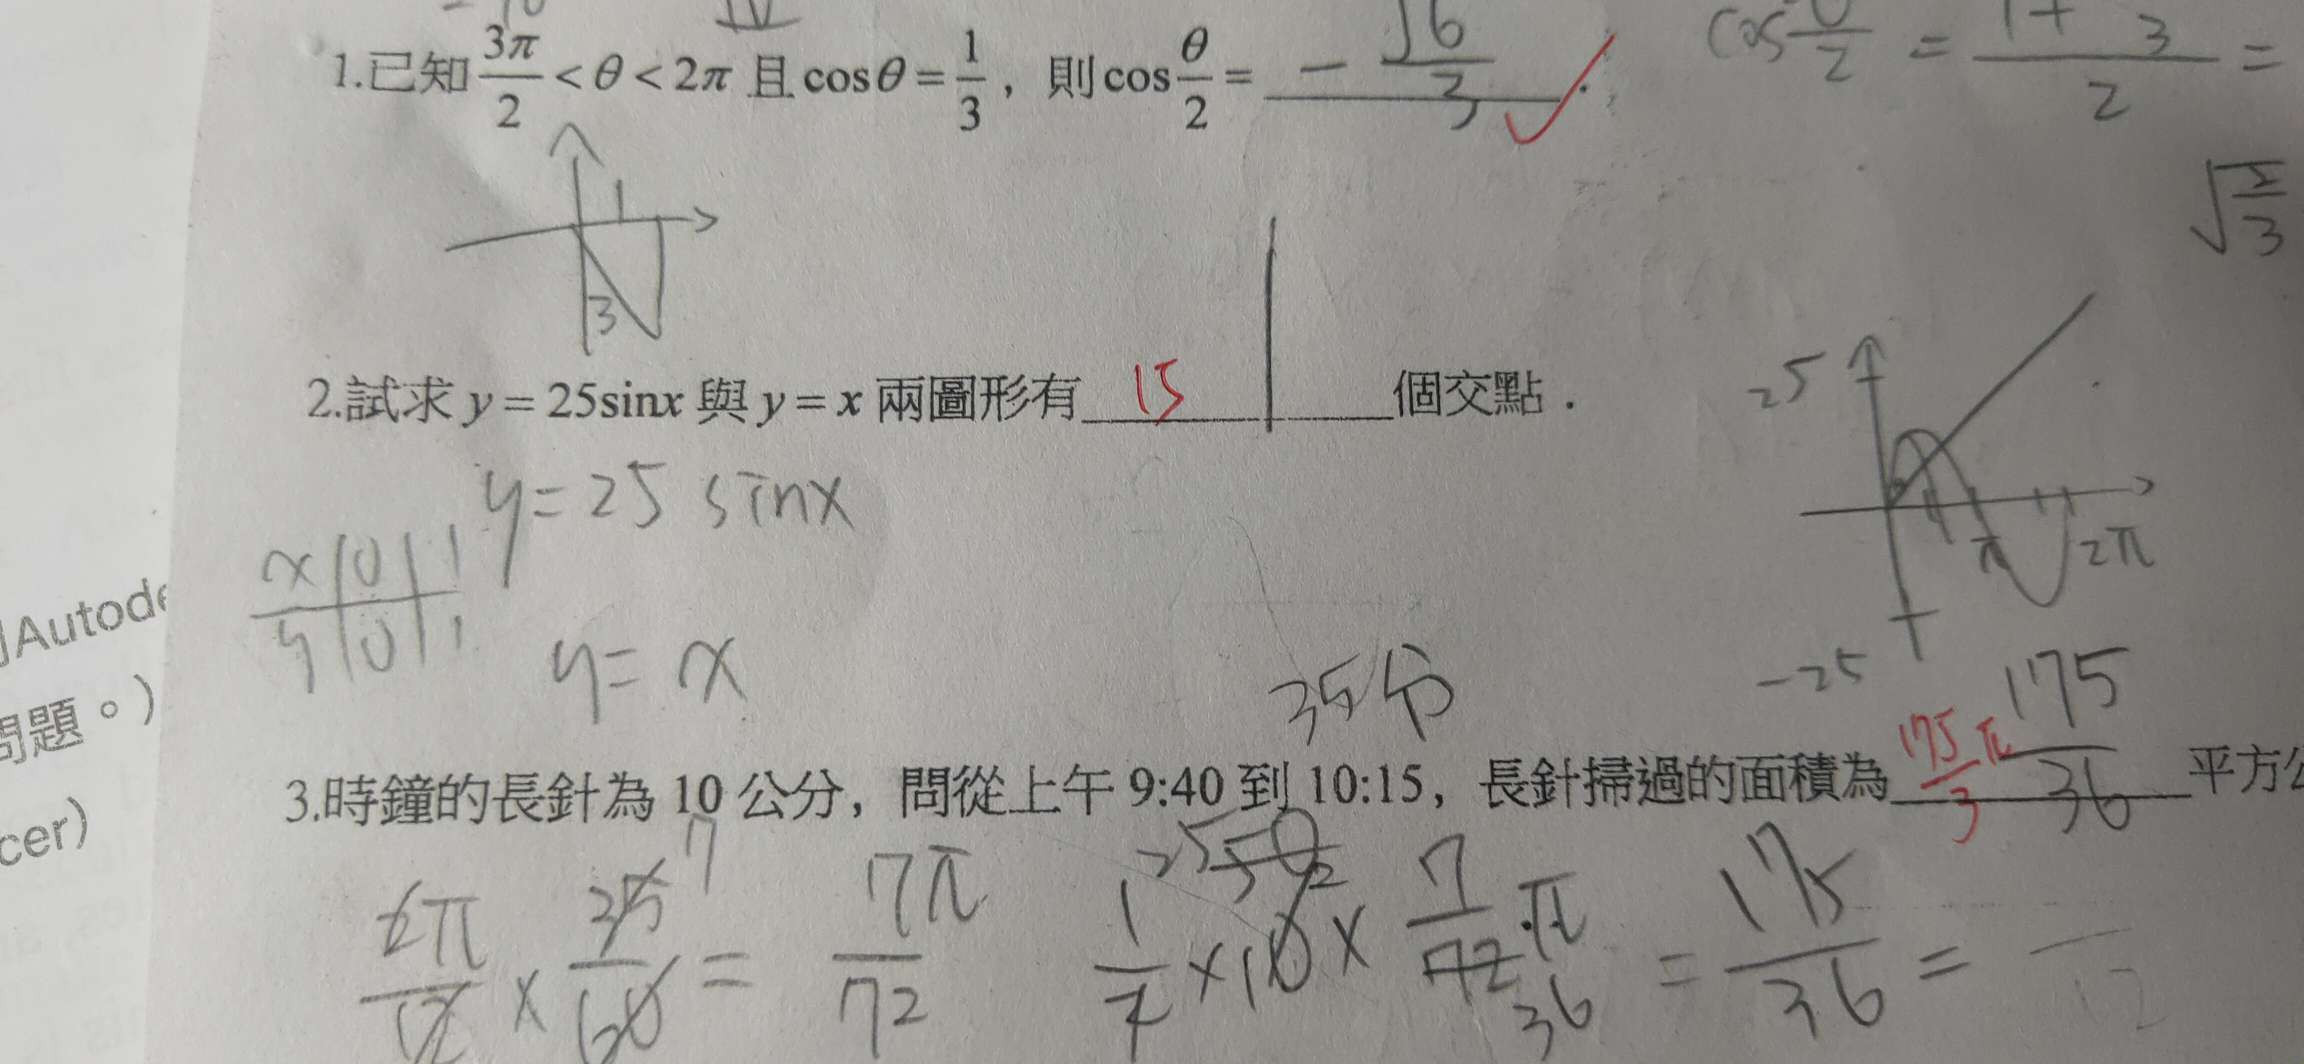 1.已知 3π/2 < θ < 2π 且 cosθ = 1/3 ，則 cos θ/2 = - √6/3 .
1
3
√2/3
2.試求 y = 25sinx 與 y = x 兩圖形有 15 個交點．
25
π
2π
-25
y=25 sinx
x 0 1
y 0 1
y= x
35分
3.時鐘的長針為 10 公分，問從上午 9:40 到 10:15，長針掃過的面積為 175/3 π 175/36 平方
2π/12 × 35/60 7 = 7π/72
7/72 · π 36 = 175/36 =
Autode
問題。）
cer）